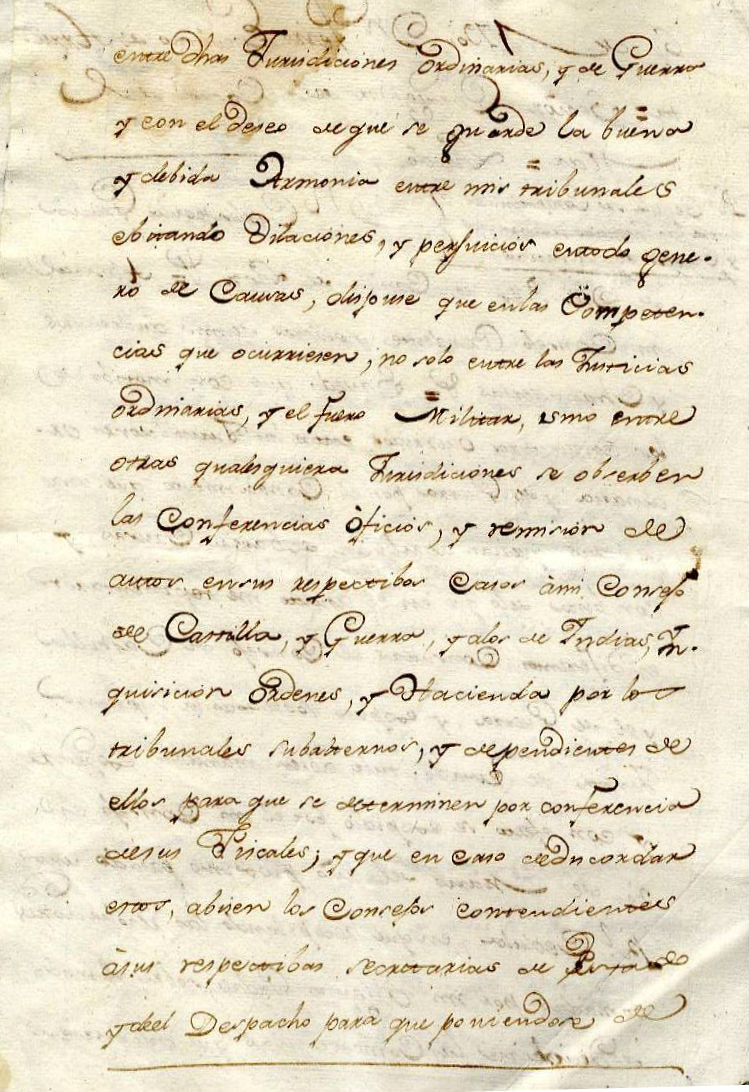 entre dhas Jurisdiciones ordinarias, y de Guerra
y con el deseo de que se guarde la buena
y debida Armonia entre mis tribunales
ebitando Dilaciones, y perjuicios en todo gene-
ro de Causas, dispuse que en las Competen-
cias que ocurriesen, no solo entre las Justicias
ordinarias, y el fuero Militar, sino entre
otras qualesquiera Jurisdiciones se observen
las Conferencias oficios, y remision de
autos en sus respectibos Casos àmi Consejo
de Castilla, y Guerra, y alos de Indias, In-
quisicion Ordenes, y Hacienda por los
tribunales subalternos, y dependientes de
ellos para que se determinen por conferencia
de sus Fiscales; y que en caso de discordar
estos, abisen los Consejos contendientes
àsus respectibas secretarias de Estado
y del Despacho para que poniendose de